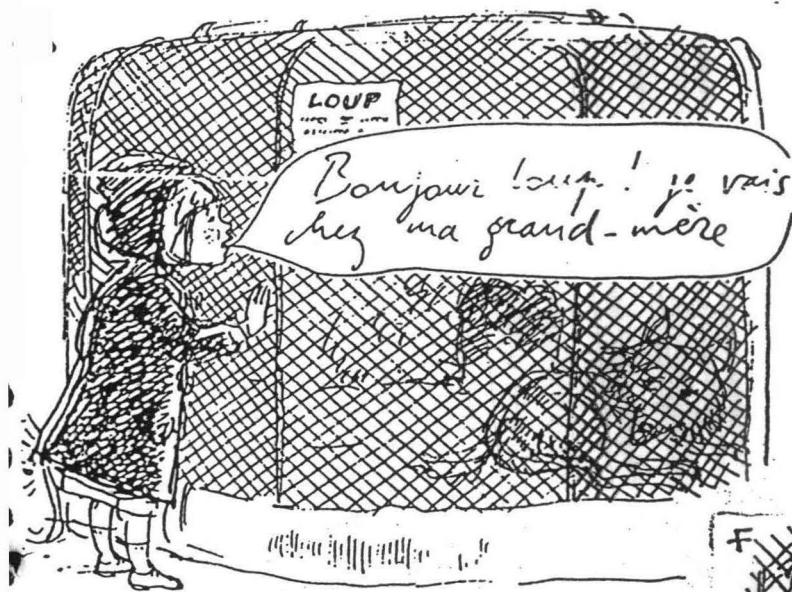 LOUP
Bonjour loup ! je vais
chez ma grand-mère
F